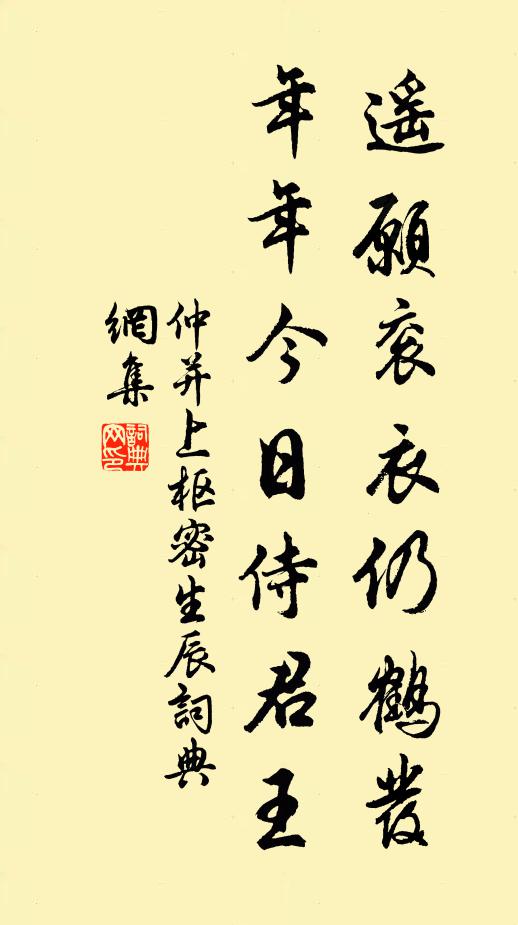 遥願衮衣仍鶴發
年年今日侍君王
仲并上枢密生辰詞典
網集
詞典網印